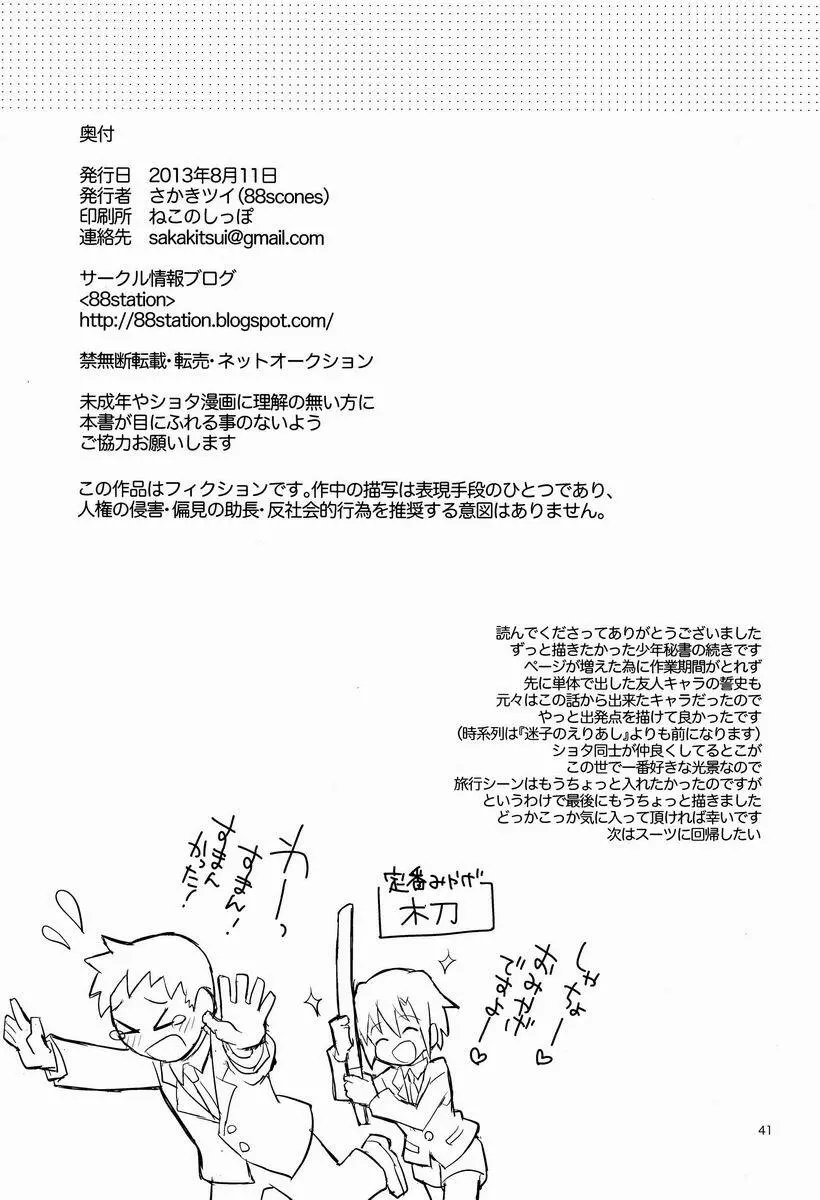 奥付
発行日　2013年8月11日
発行者　さかきツイ（88scones）
印刷所　ねこのしっぽ
連絡先　sakakitsui@gmail.com
サークル情報ブログ
<88station>
http://88station.blogspot.com/
禁無断転載・転売・ネットオークション
未成年やショタ漫画に理解の無い方に
本書が目にふれる事のないよう
ご協力お願いします
この作品はフィクションです。作中の描写は表現手段のひとつであり、
人権の侵害・偏見の助長・反社会的行為を推奨する意図はありません。
読んでくださってありがとうございました
ずっと描きたかった少年秘書の続きです
ページが増えた為に作業期間がとれず
先に単体で出した友人キャラの誓史も
元々はこの話から出来たキャラだったので
やっと出発点を描けて良かったです
（時系列は『迷子のえりあし』よりも前になります）
ショタ同士が仲良くしてるとこが
この世で一番好きな光景なので
旅行シーンはもうちょっと入れたかったのですが
というわけで最後にもうちょっと描きました
どっかこっか気に入って頂ければ幸いです
次はスーツに回帰したい
わーっ
すまん!
すまんかった!
定番みやげ
木刀
しゃちょー♡
おみやげですよー♡
41